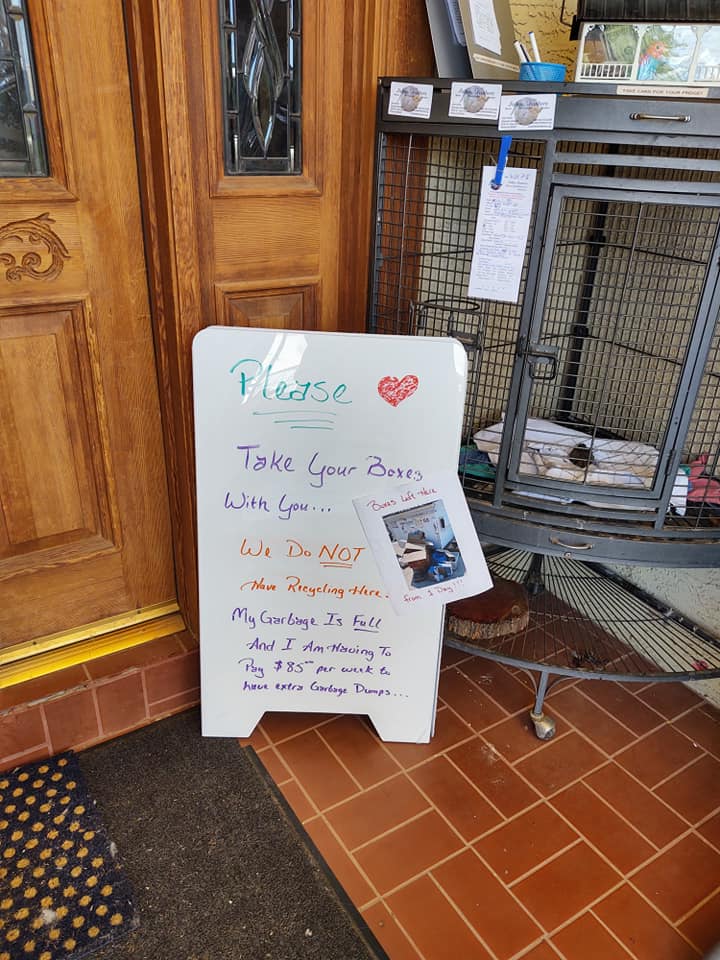 Please
Take Your Boxes
With You...
We Do NOT
Have Recycling Here.
My Garbage Is Full
And I Am Having To
Pay $85.00 per week to
have extra Garbage Dumps...
Boxes Left Here
from 1 Day!!!
TAKE CARN FOR YOUR PIDGE!